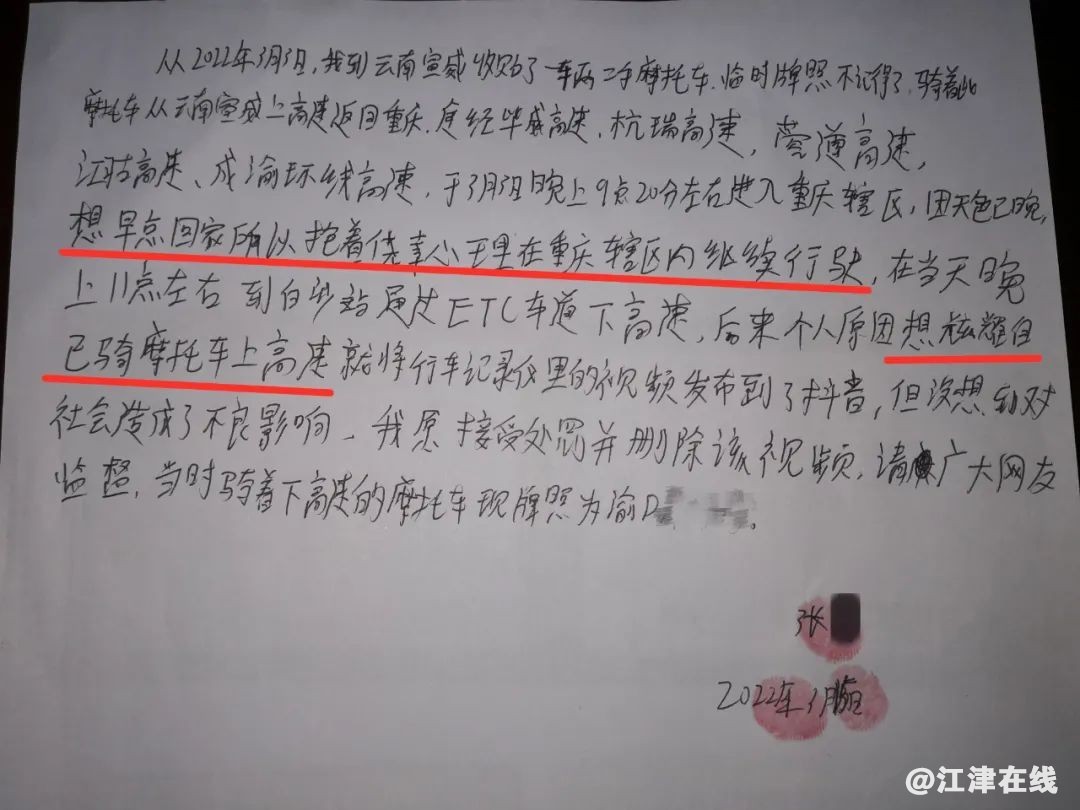 从2022年3月3日,我到云南宣威收购了一车两二手摩托车.临时牌照不记得了,骑着此
摩托车从云南宣威上高速返回重庆.途经毕威高速、杭瑞高速,蓉遵高速,
江习古高速、成渝环线高速,于3月3日晚上9点20分左右进入重庆辖区,因天色已晚,
想早点回家所以抱着侥幸心理在重庆辖区内继续行驶,在当天晚
上11点左右到白沙站通过ETC车道下高速,后来个人原因想炫耀自
己骑摩托车上高速就将行车记录仪里的视频发布到了抖音,但没想到对
社会造成了不良影响、我愿接受处罚并删除该视频,请广大网友
监督,当时骑着下高速的摩托车现牌照为渝D
张
2022年3月 日
@江津在线